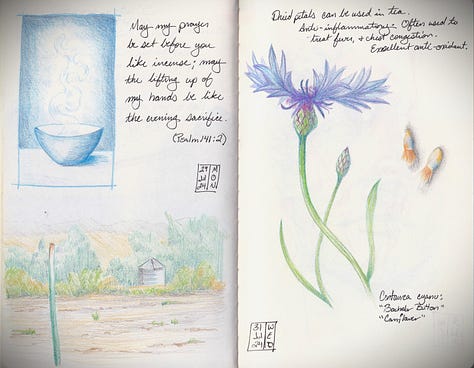 May my prayer
be set before you
like incense; may
the lifting up of
my hands be like
the evening sacrifice.
(Psalm 141:2)
29 M
Jul O
24 N
Dried petals can be used in tea.
Anti-inflammatory. Often used to
treat fever, & chest congestion.
Excellent anti-oxidant.
Centaurea cyanus:
"Bachelor Button"
"Cornflower"
31 W
Jul E
24 D